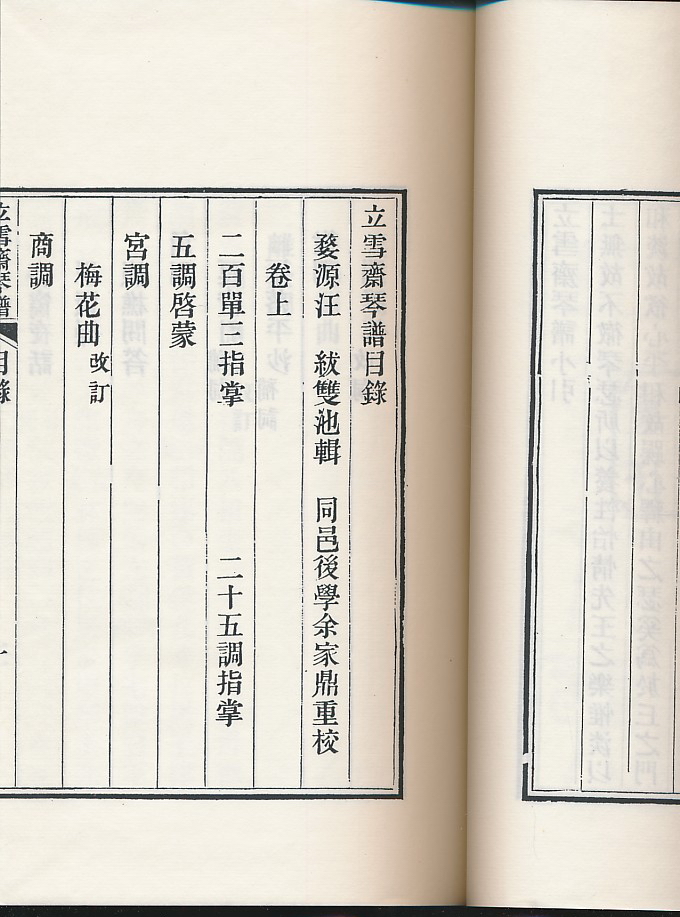 立雪齋琴譜目錄
婺源汪 紱雙池輯 同邑後學余家鼎重校
卷上
二百單三指掌 二十五調指掌
五調啓蒙
宮調
梅花曲 改訂
商調
立雪齋琴譜 目錄 一